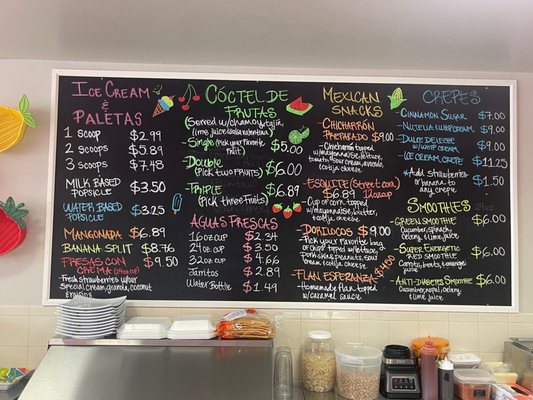 ICE CREAM
&
PALETAS
1 SCOOP $2.99
2 SCOOPS $5.89
3 SCOOPS $7.48
MILK BASED
POPSICLE $3.50
WATER BASED
POPSICLE $3.25
MANGONADA $6.89
BANANA SPLIT $8.76
FRESAS CON
CREMA (14oz cup) $9.50
-Fresh strawberries w/our
Special cream, granola, coconut
CÓCTEL DE
FRUTAS
(Served w/chamoy, tajin,
lime juice
-Single (Pick your favorite
fruit) $5.00
-Double
(Pick two fruits) $6.00
-TRIPLE
(Pick three Fruits) $6.89
AGUAS FRESCAS
16oz cup $2.34
21oz cup $3.50
32oz cup $4.66
Jarritos $2.89
Water Bottle $1.49
MEXICAN
SNACKS
-CHICHARRÓN
PREPARADO $9.00
Chicharrón topped
w/mayonnaise, lettuce,
tomato, sour cream, avocado,
cotija cheese
-ESQUITE (Street corn)
$6.89 12oz cup
Cup of corn topped
w/mayonnaise, butter,
cotija cheese
-DORILOCOS $9.00
Pick your favorite bag
of chips topped w/lettuce,
Pork skins, peanuts, sour
cream & cotija cheese
-FLAN ESPERANZA $4.00
-Homemade flan topped
w/caramel sauce
CREPES
-CINNAMON SUGAR $7.00
-NUTELLA W/WIP CREAM $9.00
-DULCE DE LECHE
W/WIP CREAM $9.00
-ICE CREAM CREPE $11.25
*Add strawberries
or banana to
any crepe $1.50
SMOOTHIES
-GREEN SMOOTHIE $6.00
Cucumber, spinach,
celery, & lime juice
-SUPER ENERGETIC
RED SMOOTHIE $6.00
Carrots, beets, & orange
juice
-ANTI-DIABETES SMOOTHIE $6.00
Cucumber, nopal, celery,
& lime juice